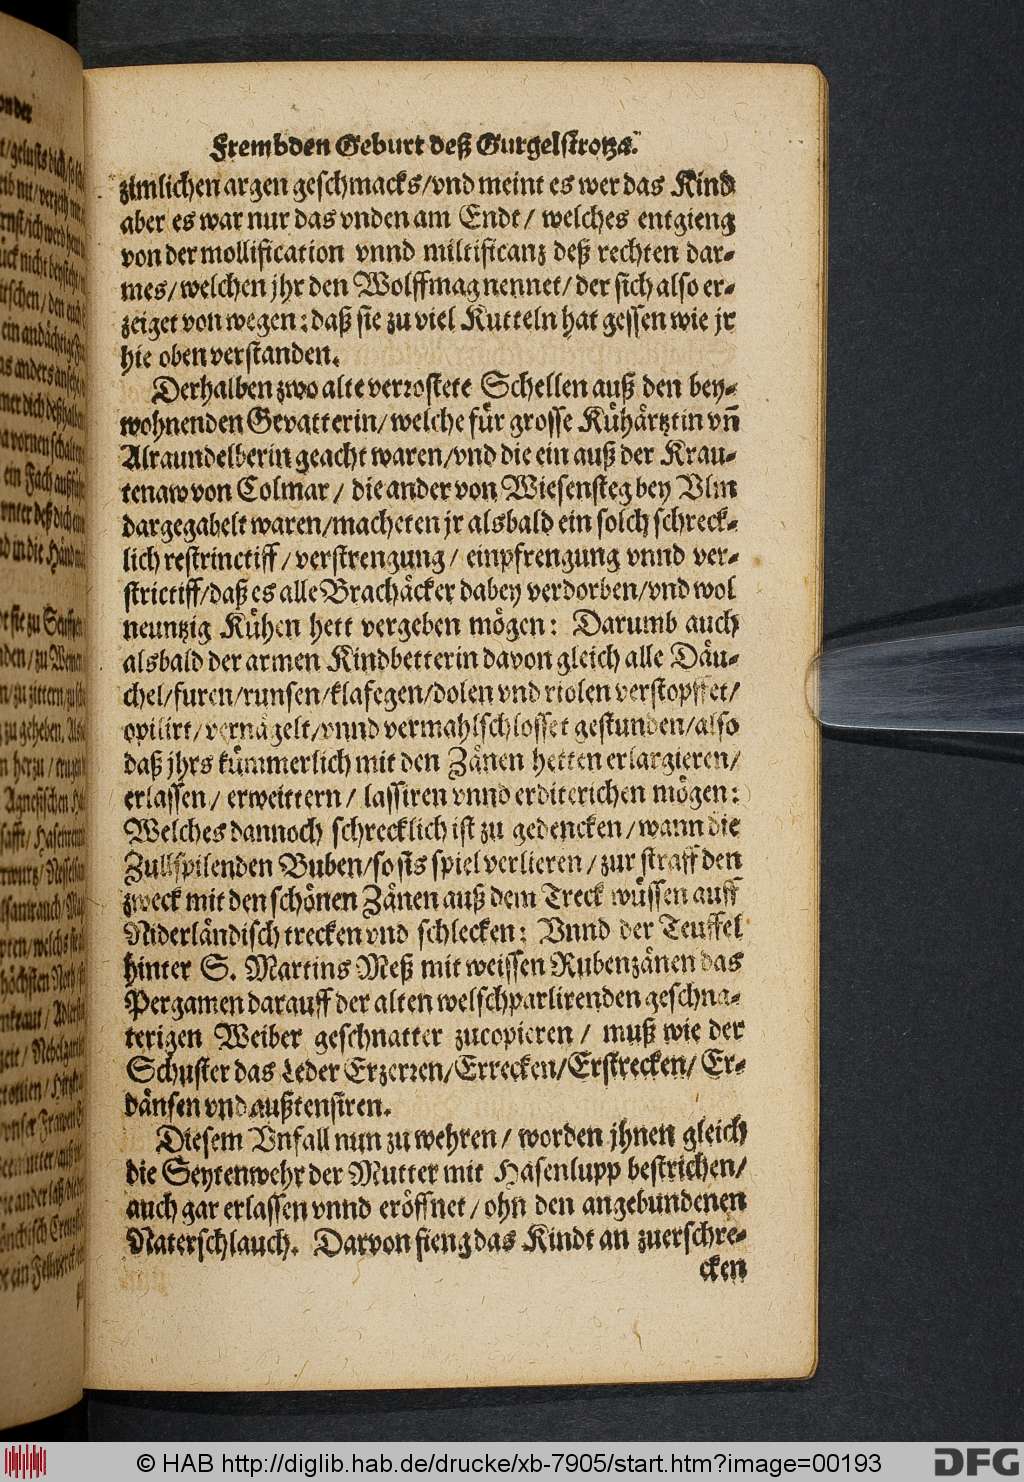 Frembden Geburt deß Gurgelstrotza.
zimlichen argen geschmacks/vnd meint es wer das Kind
aber es war nur das vnden am Endt/ welches entgieng
von der mollification vnnd miltificanz deß rechten dar-
mes/welchen jhr den Wolffmag nennet/der sich also er-
zeiget von wegen: daß sie zu viel Kutteln hat gessen wie jr
hie oben verstanden.
Derhalben zwo alte verrostete Schellen auß den bey-
wohnenden Gevatterin/welche für grosse Kühärtztin vn̄
Alraundelberin geacht waren/vnd die ein auß der Krau-
tenaw von Colmar/ die ander von Wiesensteg bey Vlm
dargegabelt waren/macheten jr alsbald ein solch schreck-
lich restrinctiff/verstrengung/ einpfrengung vnnd ver-
strictiff/daß es alle Brachäcker dabey verdorben/vnd wol
neuntzig Kühen hett vergeben mögen: Darumb auch
alsbald der armen Kindbetterin davon gleich alle Däu-
chel/furen/runsen/klafegen/dolen vnd riolen verstopffet/
opilirt/vernägelt/vnnd vermahlschlosset gestunden/also
daß jhrs kümmerlich mit den Zänen hetten erlargieren/
erlassen/ erweittern/ lassiren vnnd erditerichen mögen:
Welches dannoch schrecklich ist zu gedencken/wann die
Zullspilenden Buben/so sis spiel verlieren/zur straff den
zweck mit den schönen Zänen auß dem Treck wüssen auff
Niderländisch trecken vnd schlecken: Vnnd der Teuffel
hinter S. Martins Meß mit weissen Rubenzänen das
Pergamen darauff der alten welschparlirenden geschna-
terigen Weiber geschnatter zucopieren/ muß wie der
Schuster das Leder Erzerren/Errecken/Erstrecken/ Er-
dänsen vnd außtensiren.
Diesem Vnfall nun zu wehren/ worden jhnen gleich
die Seytenwehr der Mutter mit Hasenlupp bestrichen/
auch gar erlassen vnnd eröffnet/ohn den angebundenen
Naterschlauch. Darvon fieng das Kindt an zuerschre-
cken
© HAB http://diglib.hab.de/drucke/xb-7905/start.htm?image=00193
DFG